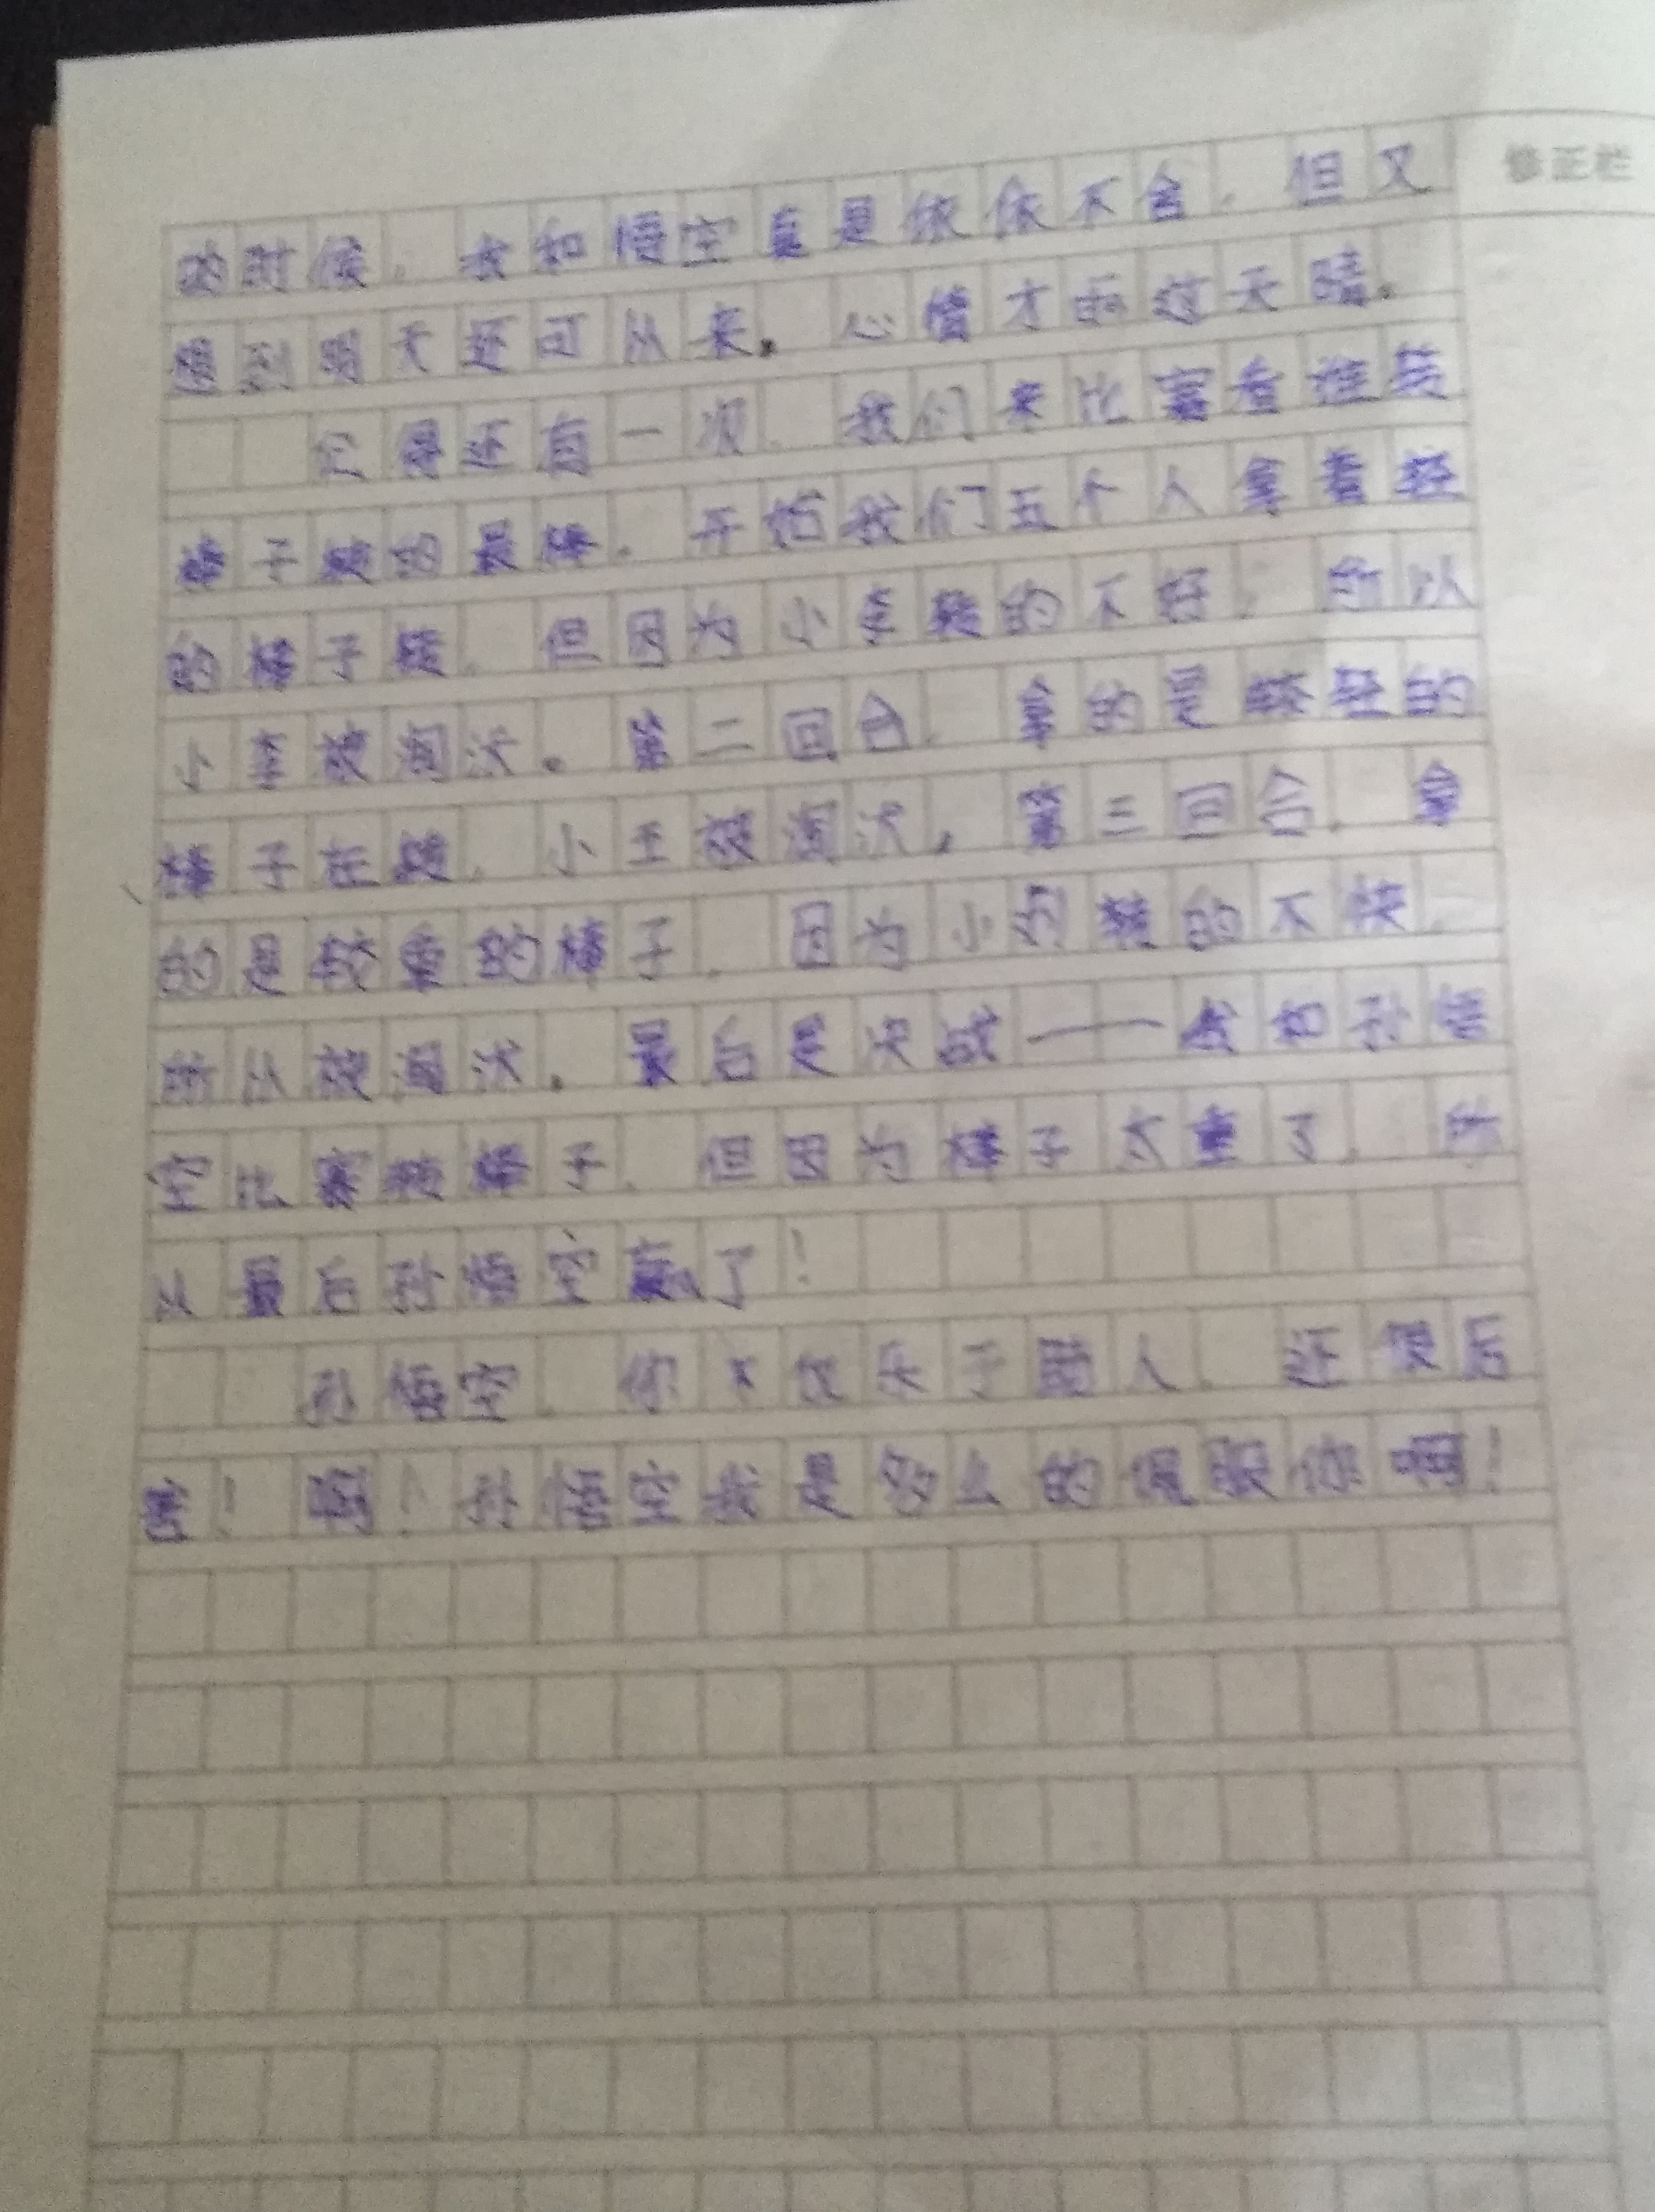 修正栏
的时候，我和悟空真是依依不舍，但又
想到明天还可以来。心情才雨过天晴。
记得还有一次，我们来比赛看谁转
棒子转的最棒。开始我们五个人拿着轻
的棒子转，但因为小李转的不好，所以
小李被淘汰。第二回合，拿的是较轻的
棒子在转，小王被淘汰，第三回合，拿
的是较重的棒子，因为小刘转的不快，
所以被淘汰。最后是决战——我和孙悟
空比赛转棒子，但因为棒子太重了，所
以最后孙悟空赢了！
孙悟空，你不仅乐于助人，还很厉
害！啊！孙悟空我是多么的佩服你啊！